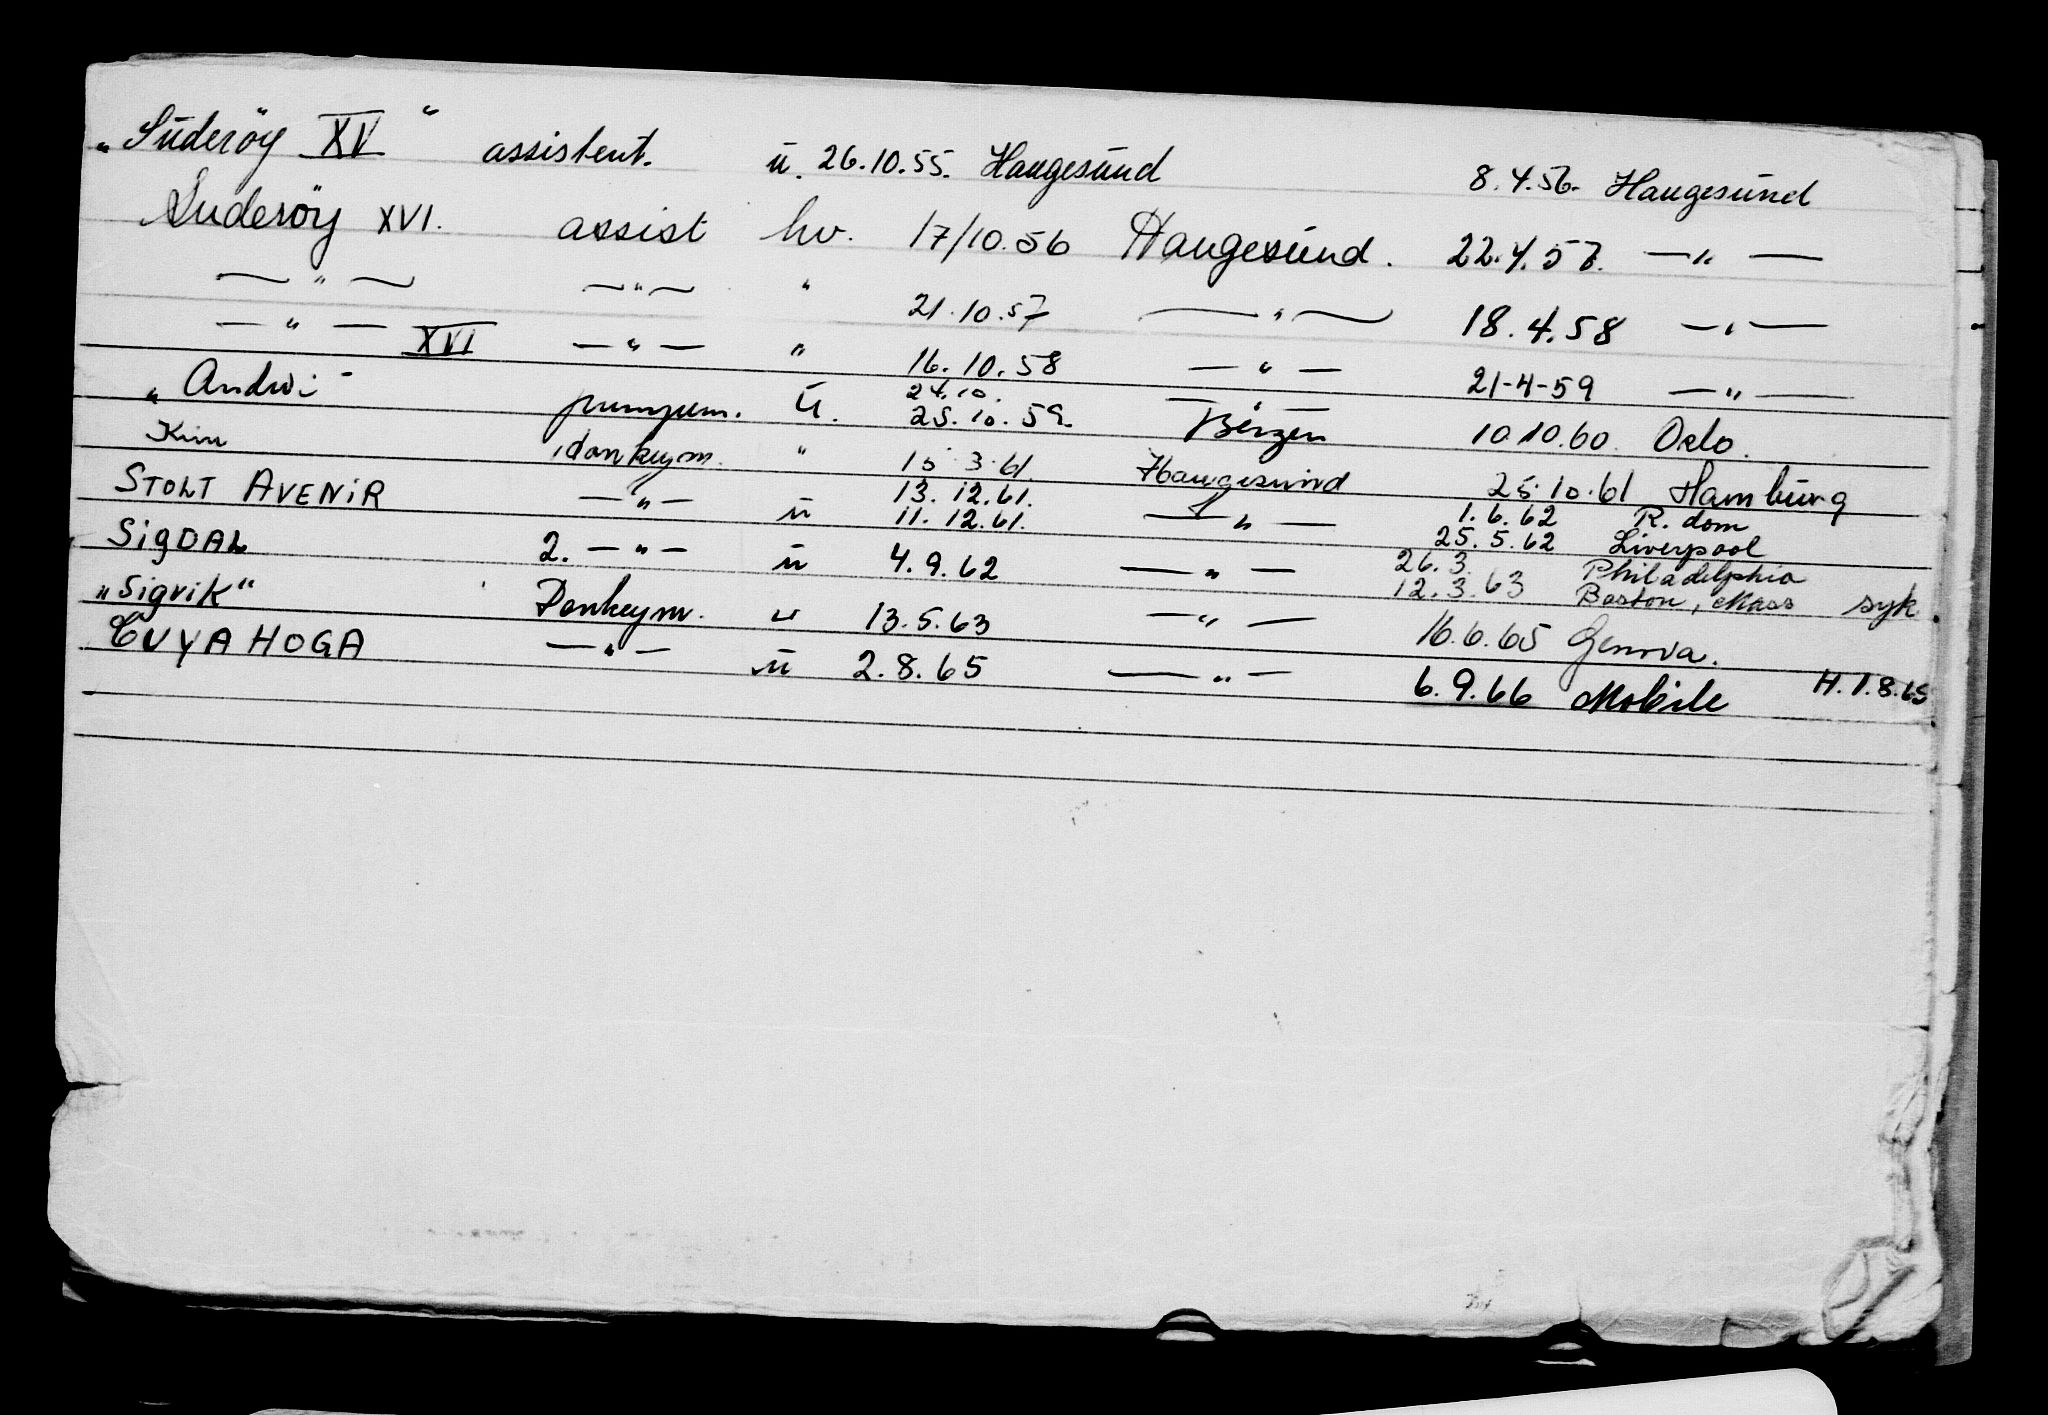 „Suderöy XV“ assistent. u. 26.10.55. Haugesund 8.4.56. Haugesund
Suderöy XVI. assist hv. 17/10.56 Haugesund. 22.4.57. —„—
—„— —„— „ 21.10.57 —„— 18.4.58 —„—
—„— XVI —„— „ 16.10.58 —„— 21-4-59 —„—
24.10.
„Andwi“ pumpem. u. 25.10.59. Bergen 10.10.60. Oslo.
Kim donkeym. „ 15.3.61. Haugesund 25.10.61 Hamburg
13.12.61. 1.6.62 R.dom
STOLT AVENiR —„— u 11.12.61. —„— 25.5.62 Liverpool
26.3. Philadelphia
SigDAL 2. —„— u 4.9.62 —„— 12.3.63 Boston, Mass syk.
„Sigvik“ Donkeym. u 13.5.63 —„— 16.6.65 Genova.
CUYAHOGA —„— u 2.8.65 —„— 6.9.66 Mobile H.1.8.65